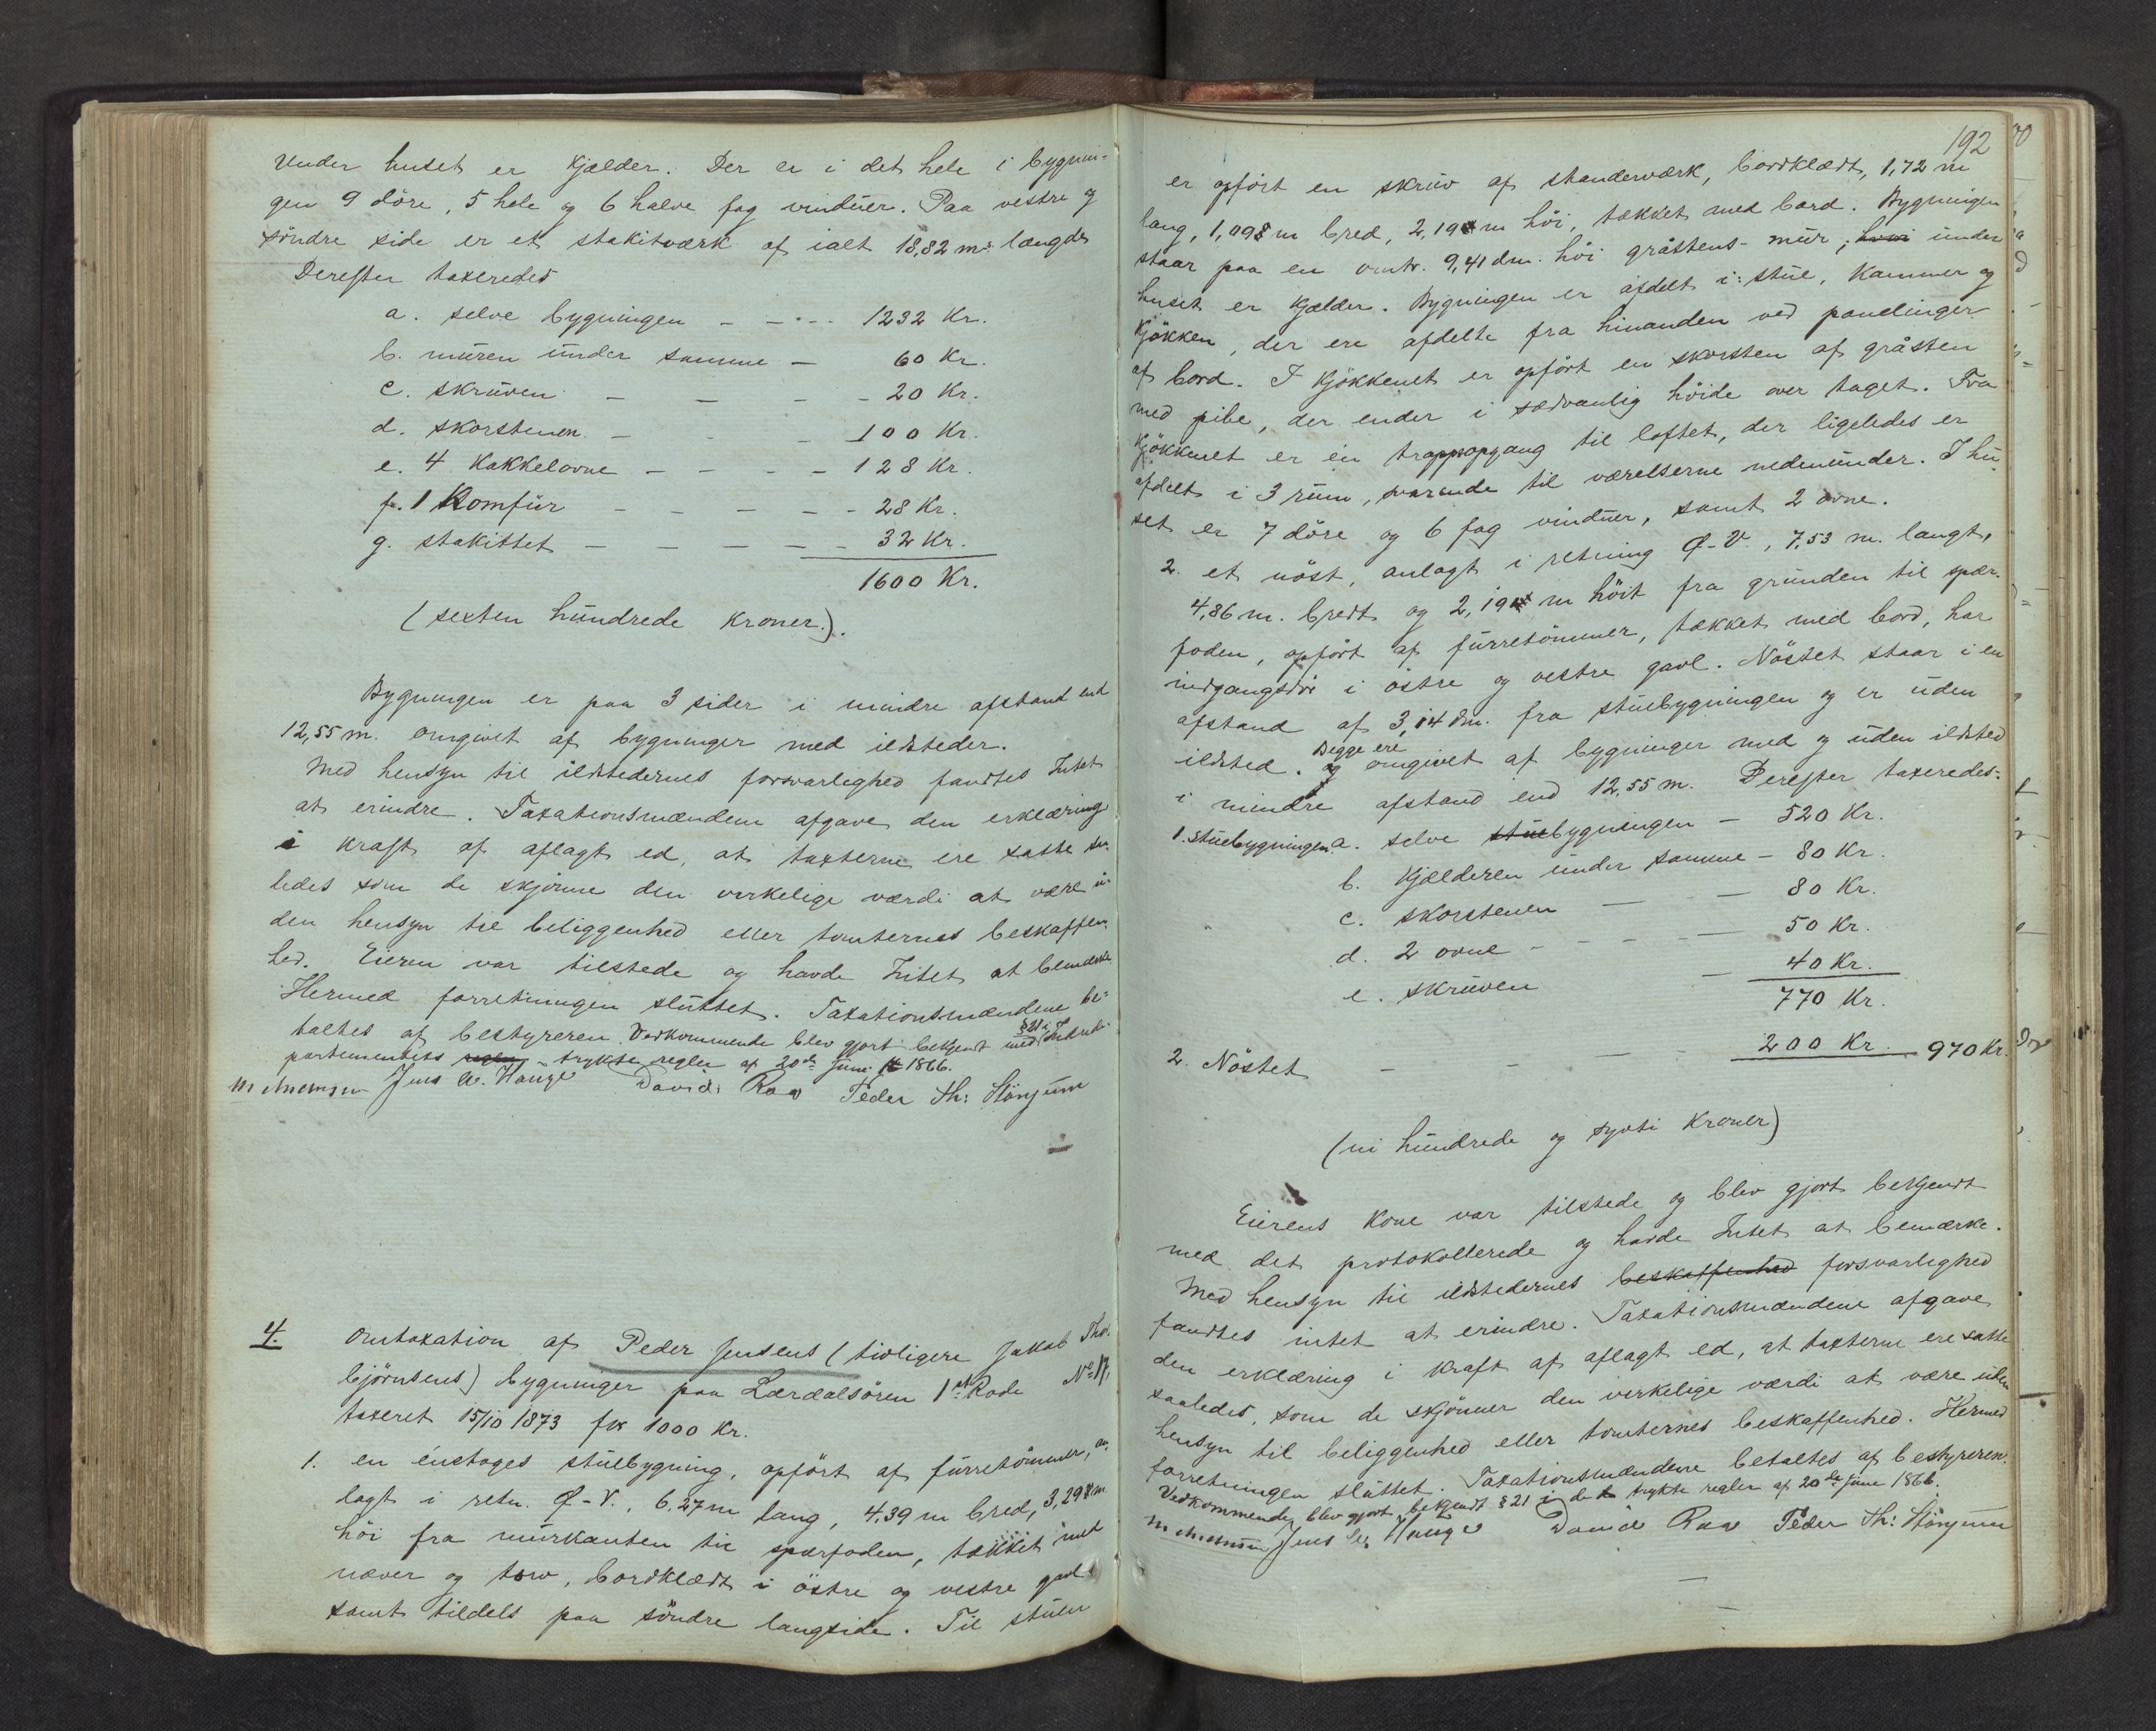 Under huset er Kjælder. Der er i det hele i bygnin-
gen 9 döre, 5 hele og 6 halve fag vinduer. Paa vestre og
söndre side er et stakitværk af ialt 18,82 m.s længde
Derefter taxeredes
a. selve bygningen - - - - 1232 Kr.
b. muren under samme - 60 Kr.
c. skruven - - - - 20 Kr.
d. skorstenen - - - 100 Kr.
e. 4 Kakkelovne - - - - 128 Kr.
f. 1 Komfur - - - - - 28 Kr.
g. stakittet - - - - - 32 Kr.
1600 Kr.
(sexten hundrede kroner.).
Bygningen er paa 3 sider i mindre afstand end
12,55 m. omgivet af bygninger med ildsteder.
Med hensyn til ildstedernes forsvarlighed fandtes Intet
at erindre. Taxationsmændene afgave den erklæring
i kraft af aflagt ed, at taxterne ere satte saa-
ledes som de skjönne den virkelige værdi at være u-
den hensyn til beliggenhed eller tomternes beskaffen-
hed. Eieren var tilstede og havde Intet at bemærke
Hermed forretningen sluttet. Taxationsmændene be-
taltes af bestyreren. Vedkommende blev gjort bekjendt med § 21 i Inde-
partementets trykte regler af 20de Juni 1866.
Jens A. Hauge David Raa Peder Th: Stönjum
4. Omtaxation af Peder Jensens (tidligere Jakob Thor-
björnsens) bygninger paa Lærdalsören 1ste Rode No 17,
taxeret 15/10 1873 for 1000 Kr.
1. en énetages stuebygning, opfört af furretömmer, an-
lagt i retn. Ø-V., 6,27 m lang, 4,39 m bred, 3,298 m
höi fra murkanten til spærfoden, tækket med
næver og torv, bordklædt i östre og vestre gavl
samt tildels paa söndre langside. Til stuen
192
er opfört en skruv af standerværk, bordklædt, 1,72 m
lang, 1,098 m bred, 2,19 m höi, tækket med bord. Bygningen
staar paa en omtr. 9,41 dm. höi gråstens-mur; under
huset er Kjælder. Bygningen er afdelt i: stue, Kammer og
Kjökken, der ere afdelte fra hinanden ved panelinger
af bord. I Kjökkenet er opfört en skorsten af gråsten
med pibe, der ender i sædvanlig höide over taget. Fra
Kjökkenet er en trappeopgang til loftet, der ligeledes er
afdelt i 3 rum, svarende til værelserne nedenunder. I hu-
set er 7 döre og 6 fag vinduer, samt 2 ovne.
2. et nöst, anlagt i retning Ø-V., 7,53 m. langt,
4,86 m. bredt og 2,19 m höit fra grunden til spær-
foden, opfört af furretömmer, tækket med bord, har
indgangsdör i östre og vestre gavl. Nöstet staar i en
afstand af 3,14 dm. fra stuebygningen og er uden
ildsted. Begge ere omgivet af bygninger med og uden ildsted
i mindre afstand end 12,55 m. Derefter taxeredes:
1. stuebygningen a. selve stuebygningen - 520 Kr.
b. Kjælderen under samme - 80 Kr.
c. skorstenen - - 80 Kr.
d. 2 ovne - - - - 50 Kr.
e. skruven - 40 Kr.
770 Kr.
2. Nöstet - - - - 200 Kr. 970 Kr.
(ni hundrede og sytti Kroner)
Eierens Kone var tilstede og blev gjort bekjendt
med det protokollerede og havde Intet at bemærke.
Med hensyn til ildstedernes beskaffenhed forsvarlighed
fandtes intet at erindre. Taxationsmændene afgave
den erklæring i kraft af aflagt ed, at taxterne ere satte
saaledes, som de skjönner den virkelige værdi at være uden
hensyn til beliggenhed eller tomternes beskaffenhed. Hermed
forretningen sluttet. Taxationsmændene betaltes af bestyreren.
Vedkommende blev gjort bekjendt § 21 i de trykte regler af 20de Juni 1866.
Jens A. Hauge David Raa Peder Th: Stönjum